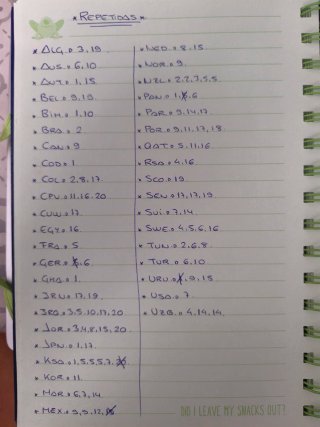 * REPETIDAS *
* ALG. 3,19
* AUS. 6,10
* AUT. 1,15
* BEL. 9,19
* BIH. 1,10
* BRA. 2
* CAN. 9
* COD. 1
* COL. 2,8,17
* CPV. 11,16,20
* CUW. 17
* EGY. 16
* FRA. 5
* GER. 6
* GHA. 1
* IRN. 17,19
* IRQ. 3,5,10,17,20
* JOR. 3,4,8,15,20
* JPN. 1,17
* KSA. 1,5,5,5,7
* KOR. 11
* MAR. 6,7,14
* MEX. 9,9,12
* NED. 8,15
* NOR. 9
* NZL. 2,2,7,5,5
* PAN. 1,6
* PAR. 9,14,17
* POR. 9,11,17,18
* QAT. 5,11,16
* RSA. 4,16
* SCO. 19
* SEN. 17,17,19
* SUI. 7,14
* SWE. 4,5,6,16
* TUN. 2,6,8
* TUR. 6,10
* URU. 9,15
* USA. 7
* UZB. 4,14,14
DID I LEAVE MY SNACKS OUT?